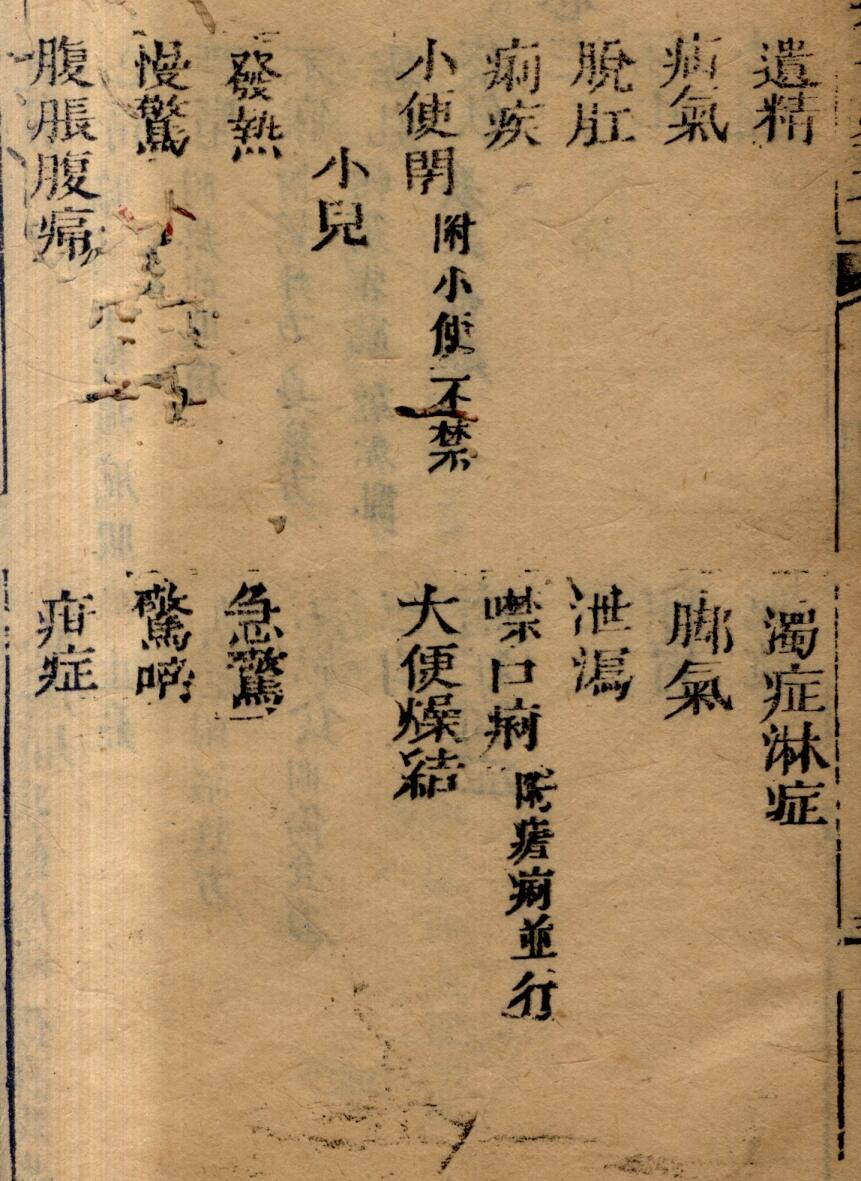 遺精
濁症淋症
疝氣
脚氣
脫肛
泄瀉
痢疾
噤口痢 附瘧痢並行
小便閉 附小便不禁
大便燥結
小兒
發熱
急驚
慢驚
驚啼
腹脹腹痛
疳症